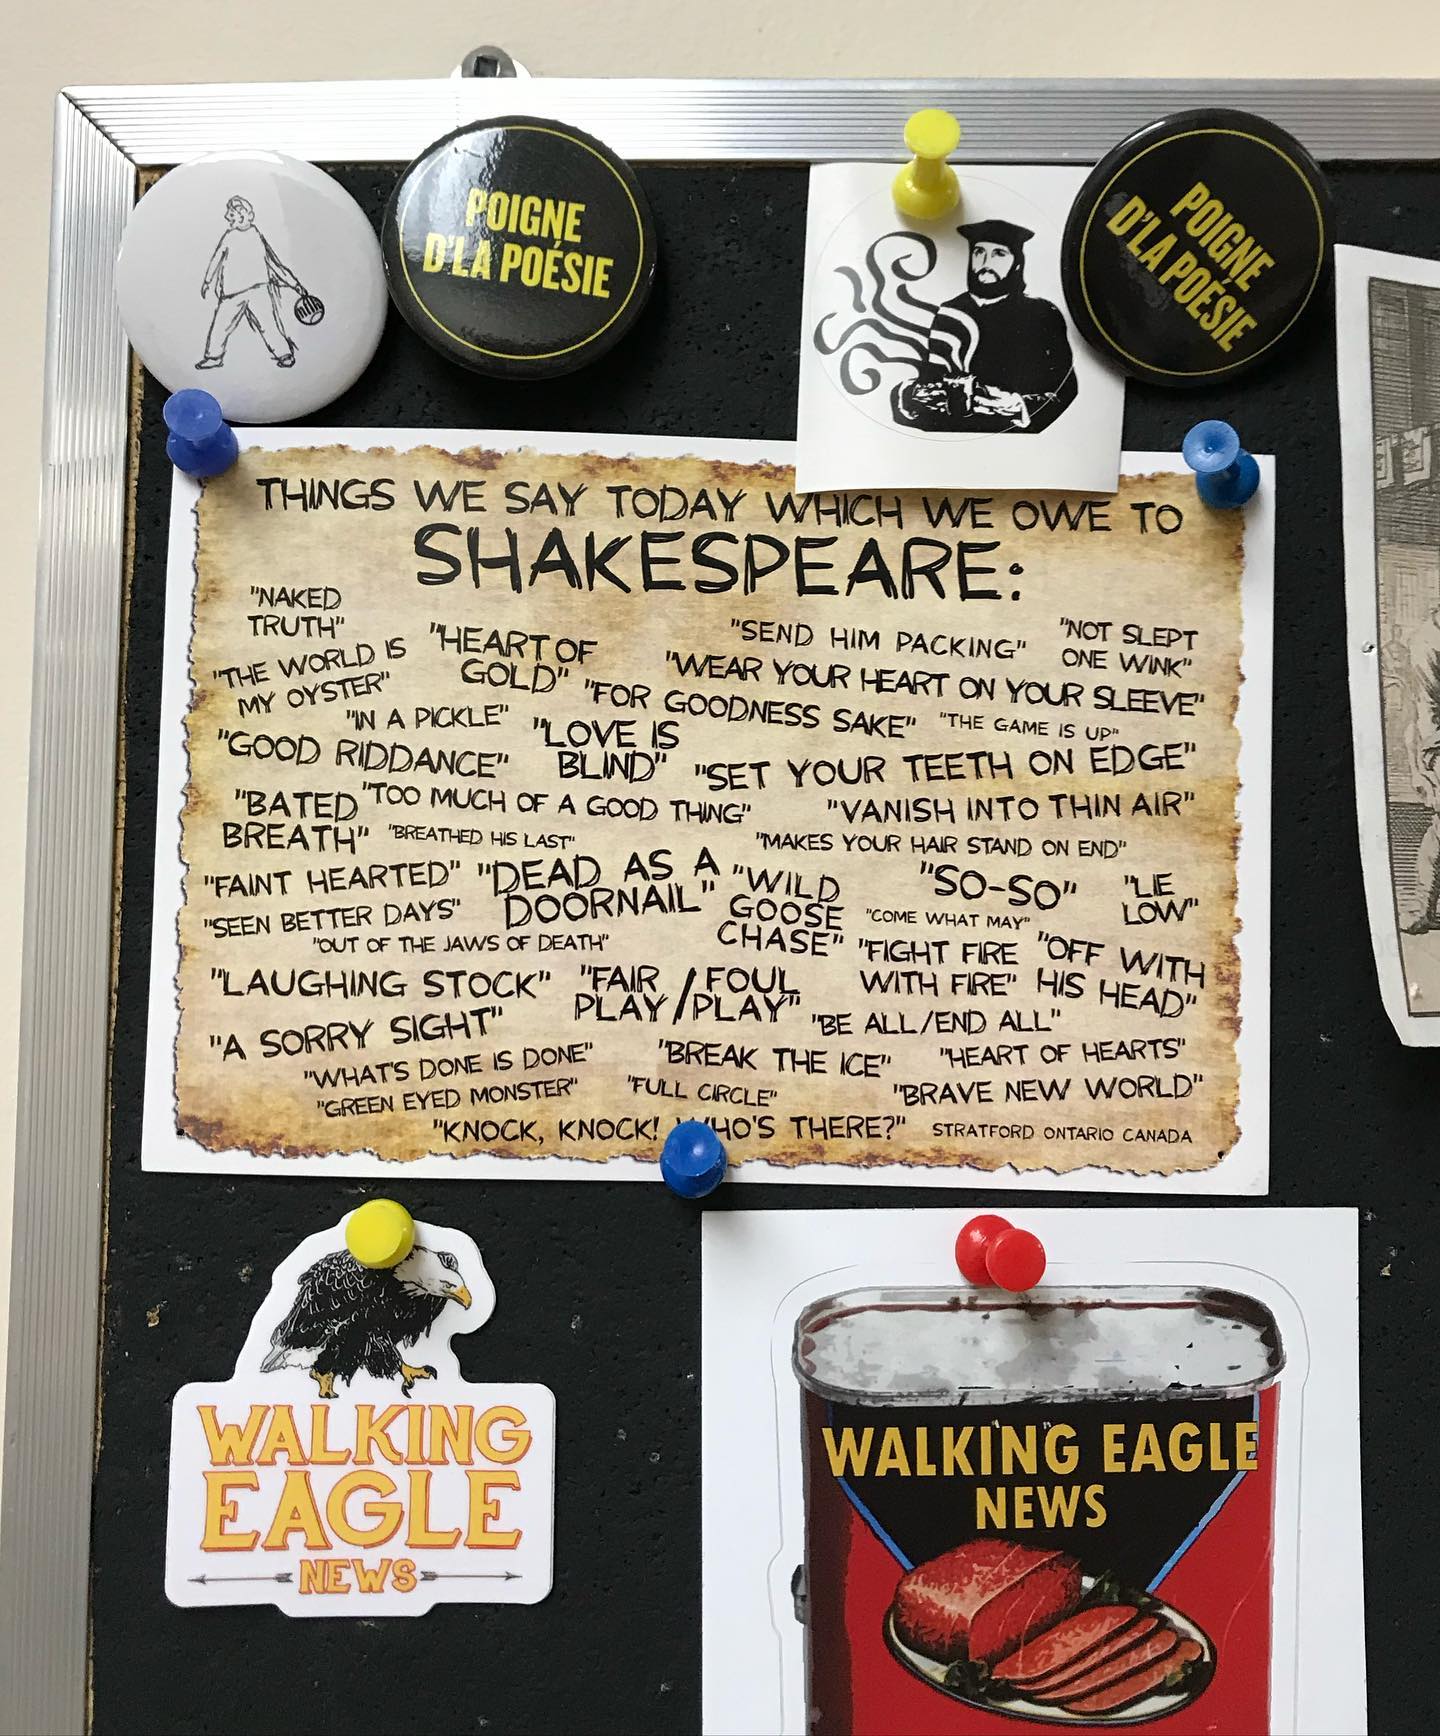 POIGNE
D'LA POÉSIE
POIGNE
D'LA POÉSIE
THINGS WE SAY TODAY WHICH WE OWE TO
SHAKESPEARE:
"NAKED
TRUTH"
"THE WORLD IS
MY OYSTER"
"HEART OF
GOLD"
"SEND HIM PACKING"
"NOT SLEPT
ONE WINK"
"WEAR YOUR HEART ON YOUR SLEEVE"
"FOR GOODNESS SAKE"
"THE GAME IS UP"
"IN A PICKLE"
"GOOD RIDDANCE"
"LOVE IS
BLIND"
"SET YOUR TEETH ON EDGE"
"BATED
BREATH"
"TOO MUCH OF A GOOD THING"
"VANISH INTO THIN AIR"
"BREATHED HIS LAST"
"MAKES YOUR HAIR STAND ON END"
"FAINT HEARTED"
"DEAD AS A
DOORNAIL"
"WILD
GOOSE
CHASE"
"SO-SO"
"LIE
LOW"
"SEEN BETTER DAYS"
"COME WHAT MAY"
"OUT OF THE JAWS OF DEATH"
"FIGHT FIRE
WITH FIRE"
"OFF WITH
HIS HEAD"
"LAUGHING STOCK"
"FAIR / FOUL
PLAY / PLAY"
"A SORRY SIGHT"
"BE ALL/END ALL"
"WHAT'S DONE IS DONE"
"BREAK THE ICE"
"HEART OF HEARTS"
"GREEN EYED MONSTER"
"FULL CIRCLE"
"BRAVE NEW WORLD"
"KNOCK, KNOCK! WHO'S THERE?"
STRATFORD ONTARIO CANADA
WALKING
EAGLE
NEWS
WALKING EAGLE
NEWS